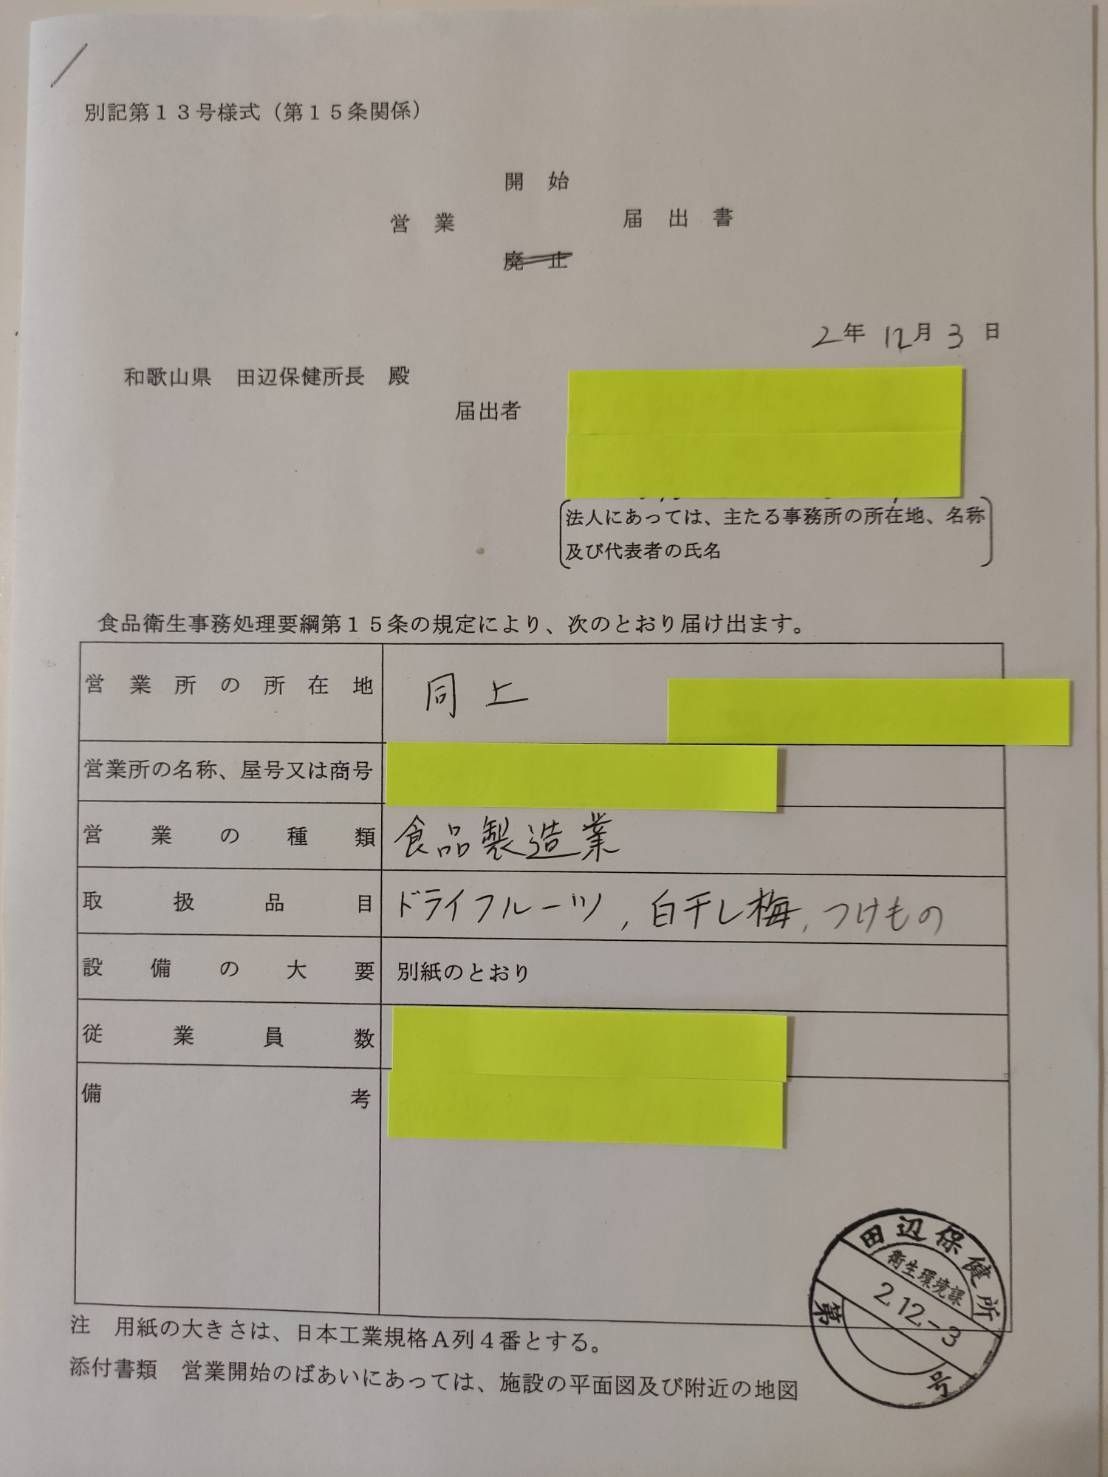 別記第１３号様式（第１５条関係）
開始
営業 届出書
廃止
2年 12月 3日
和歌山県 田辺保健所長 殿
届出者
法人にあっては、主たる事務所の所在地、名称
及び代表者の氏名
食品衛生事務処理要綱第１５条の規定により、次のとおり届け出ます。
営業所の所在地 同上
営業所の名称、屋号又は商号
営業の種類 食品製造業
取扱品目 ドライフルーツ, 白干し梅, つけもの
設備の大要 別紙のとおり
従業員数
備考
田辺保健所
衛生環境課
2.12.-3
第 号
注 用紙の大きさは、日本工業規格Ａ列４番とする。
添付書類 営業開始のばあいにあっては、施設の平面図及び附近の地図